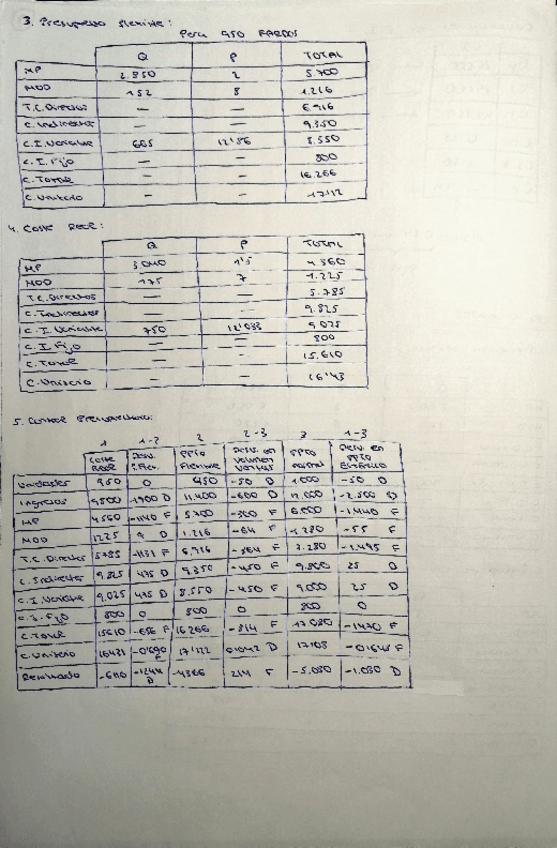 3. Presupuesto flexible:
Para 950 FARDOS
Q P TOTAL
MP 2.850 2 5.700
MOD 152 8 1.216
T.C. Directos — — 6.916
C. Indirectos — — 9.350
C.I. Variable 665 12'86 8.550
C.I. Fijo — — 800
C. Total — — 16.266
C. Unitario — — 17'12
4. Coste Real:
Q P TOTAL
MP 3.040 1'5 4.560
MOD 175 7 1.225
T.C. Directos — — 5.785
C. Indirectos — — 9.825
C.I. Variable 750 12'033 9.025
C.I. Fijo — — 800
C. Total — — 15.610
C. Unitario — — 16'43
5. Control Presupuestario:
1 1-2 2 2-3 3 1-3
Coste Real Desv. PPTO Flexible Desv. en volumen ventas PPTO Desv. en PPTO Estático
Unidades 950 0 950 -50 D 1.000 -50 D
Ingresos 9.500 -1900 D 11.400 -600 D 12.000 -2.500 D
MP 4.560 -1140 F 5.700 -300 F 6.000 -1.440 F
MOD 1225 9 D 1.216 -64 F 1.280 -55 F
T.C. Directos 5785 -1131 F 6.916 -364 F 7.280 -1.495 F
C. Indirectos 9.825 475 D 9.350 -450 F 9.800 25 D
C.I. Variable 9.025 475 D 8.550 -450 F 9.000 25 D
C.I. Fijo 800 0 800 0 800 0
C. Total 15610 -656 F 16266 -814 F 17.080 -1470 F
C. Unitario 16'431 -0'690 F 17'122 0'042 D 17'08 F
Resultado -6110 -1244 D -4866 214 F -5.080 -1.030 D